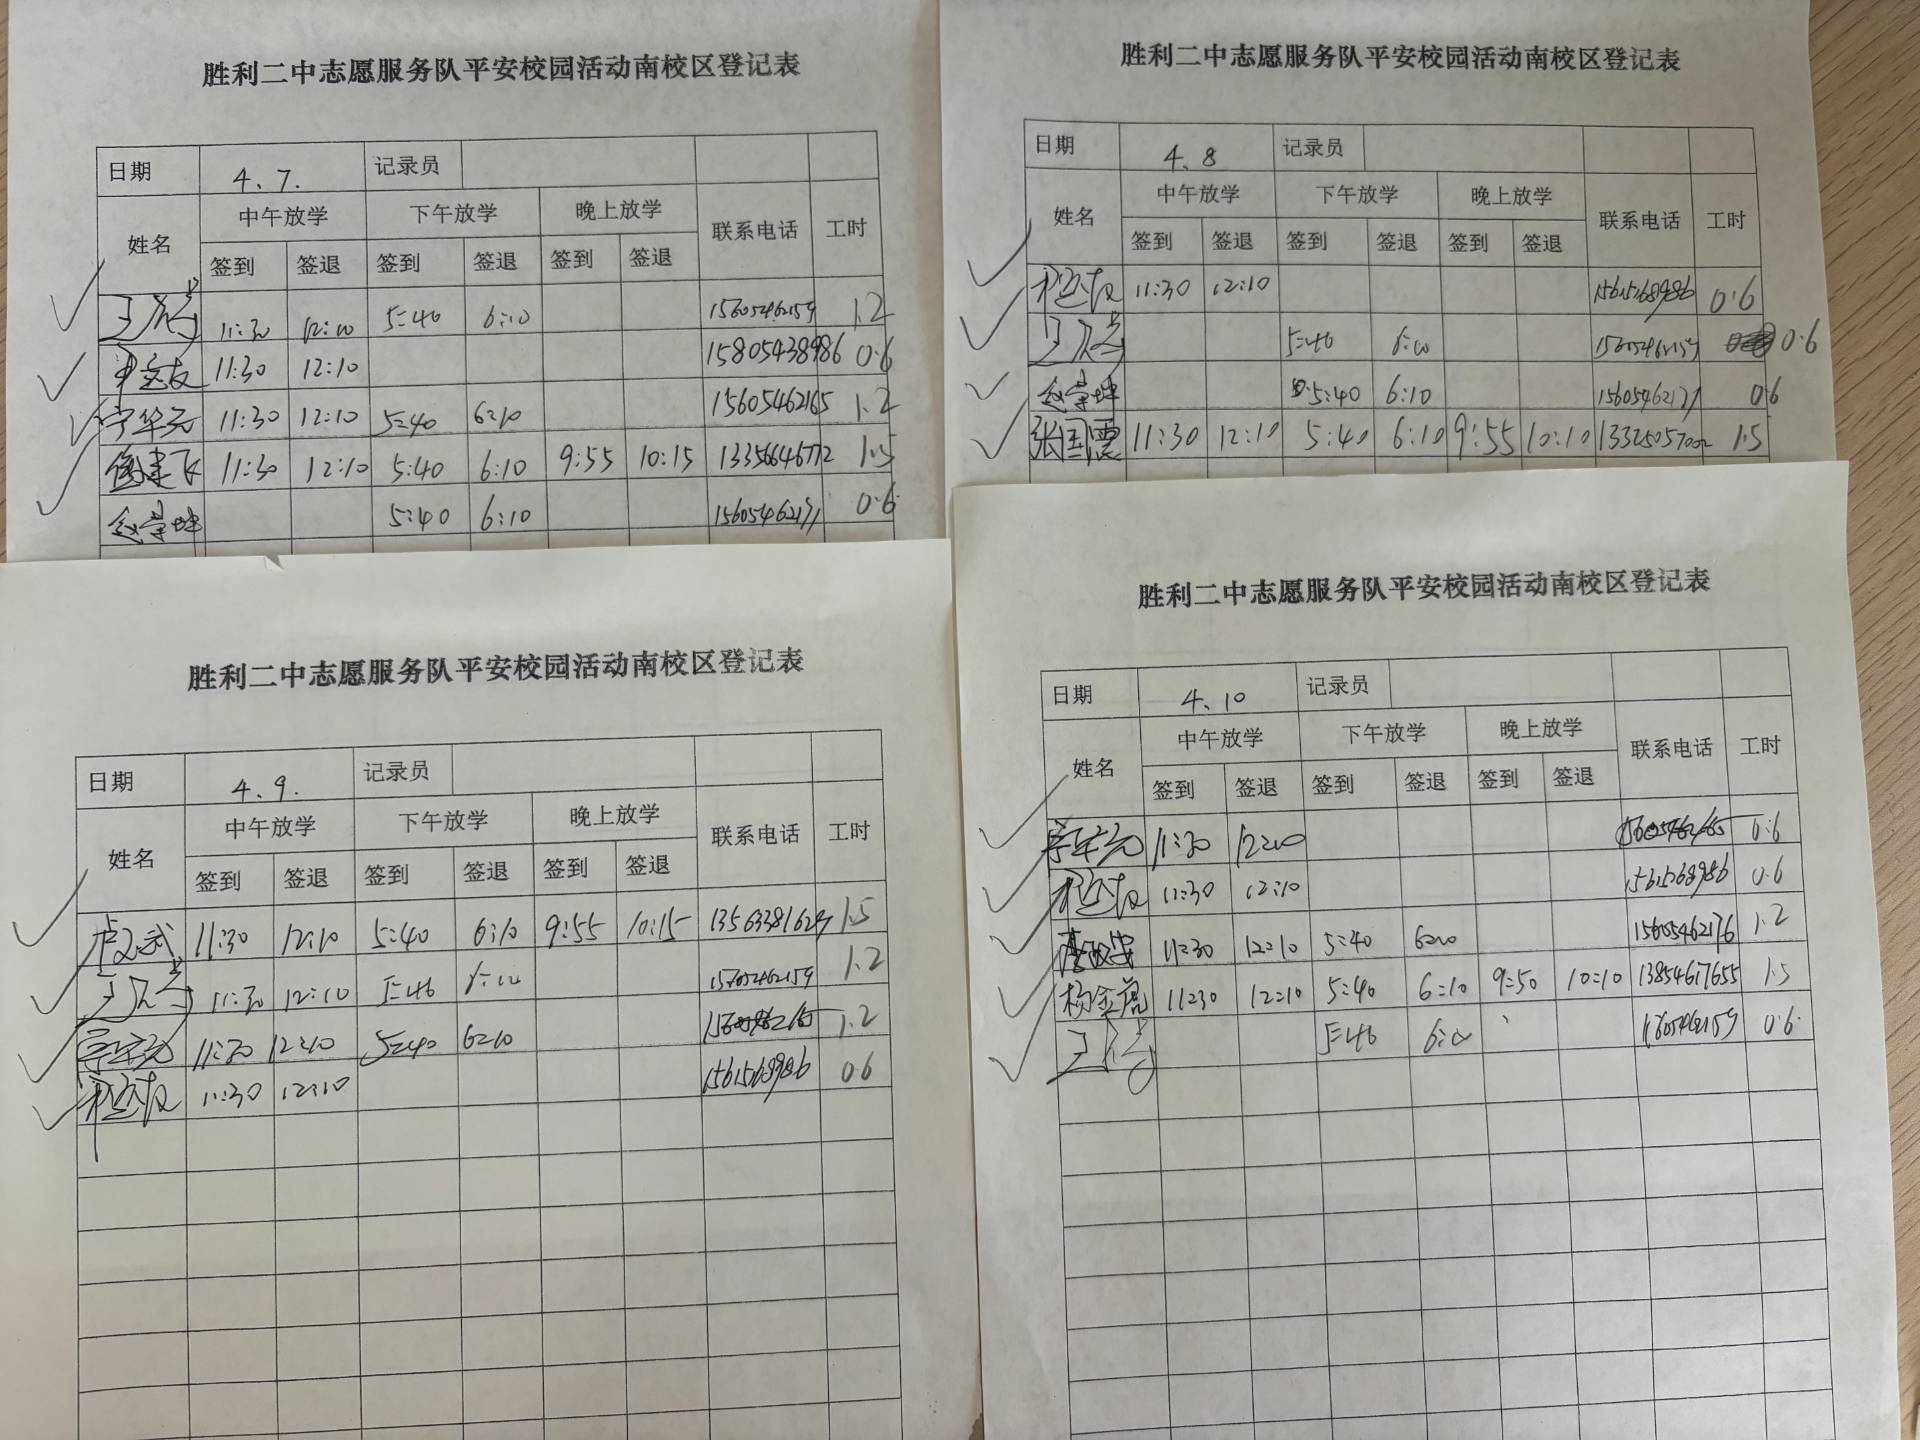 胜利二中志愿服务队平安校园活动南校区登记表
日期 4、7. 记录员
姓名 中午放学 下午放学 晚上放学 联系电话 工时
签到 签退 签到 签退 签到 签退
11:30 12:10 5:40 6:10 15605462159 1.2
11:30 12:10 15805438986 0.6
宁华元 11:30 12:10 5:40 6:10 15605462165 1.2
11:30 12:10 5:40 6:10 9:55 10:15 13356646772 1.5
5:40 6:10 15605462171 0.6
胜利二中志愿服务队平安校园活动南校区登记表
日期 4、8 记录员
姓名 中午放学 下午放学 晚上放学 联系电话 工时
签到 签退 签到 签退 签到 签退
11:30 12:10 15615268986 0.6
5:40 6:10 15605462159 0.6
5:40 6:10 15605462171 0.6
张国震 11:30 12:10 5:40 6:10 9:55 10:10 13325057002 1.5
胜利二中志愿服务队平安校园活动南校区登记表
日期 4、9. 记录员
姓名 中午放学 下午放学 晚上放学 联系电话 工时
签到 签退 签到 签退 签到 签退
卢文武 11:30 12:10 5:40 6:10 9:55 10:15 1.5
11:30 12:10 5:40 6:10 15605462159 1.2
11:30 12:10 5:40 6:10 1.2
11:30 12:10 15615268986 0.6
胜利二中志愿服务队平安校园活动南校区登记表
日期 4、10 记录员
姓名 中午放学 下午放学 晚上放学 联系电话 工时
签到 签退 签到 签退 签到 签退
11:30 12:00 15605462165 0.6
11:30 12:10 15615268986 0.6
11:30 12:10 5:40 6:00 15605462176 1.2
杨金虎 11:30 12:10 5:40 6:10 9:50 10:10 13854617655 1.5
5:40 6:10 15605462159 0.6